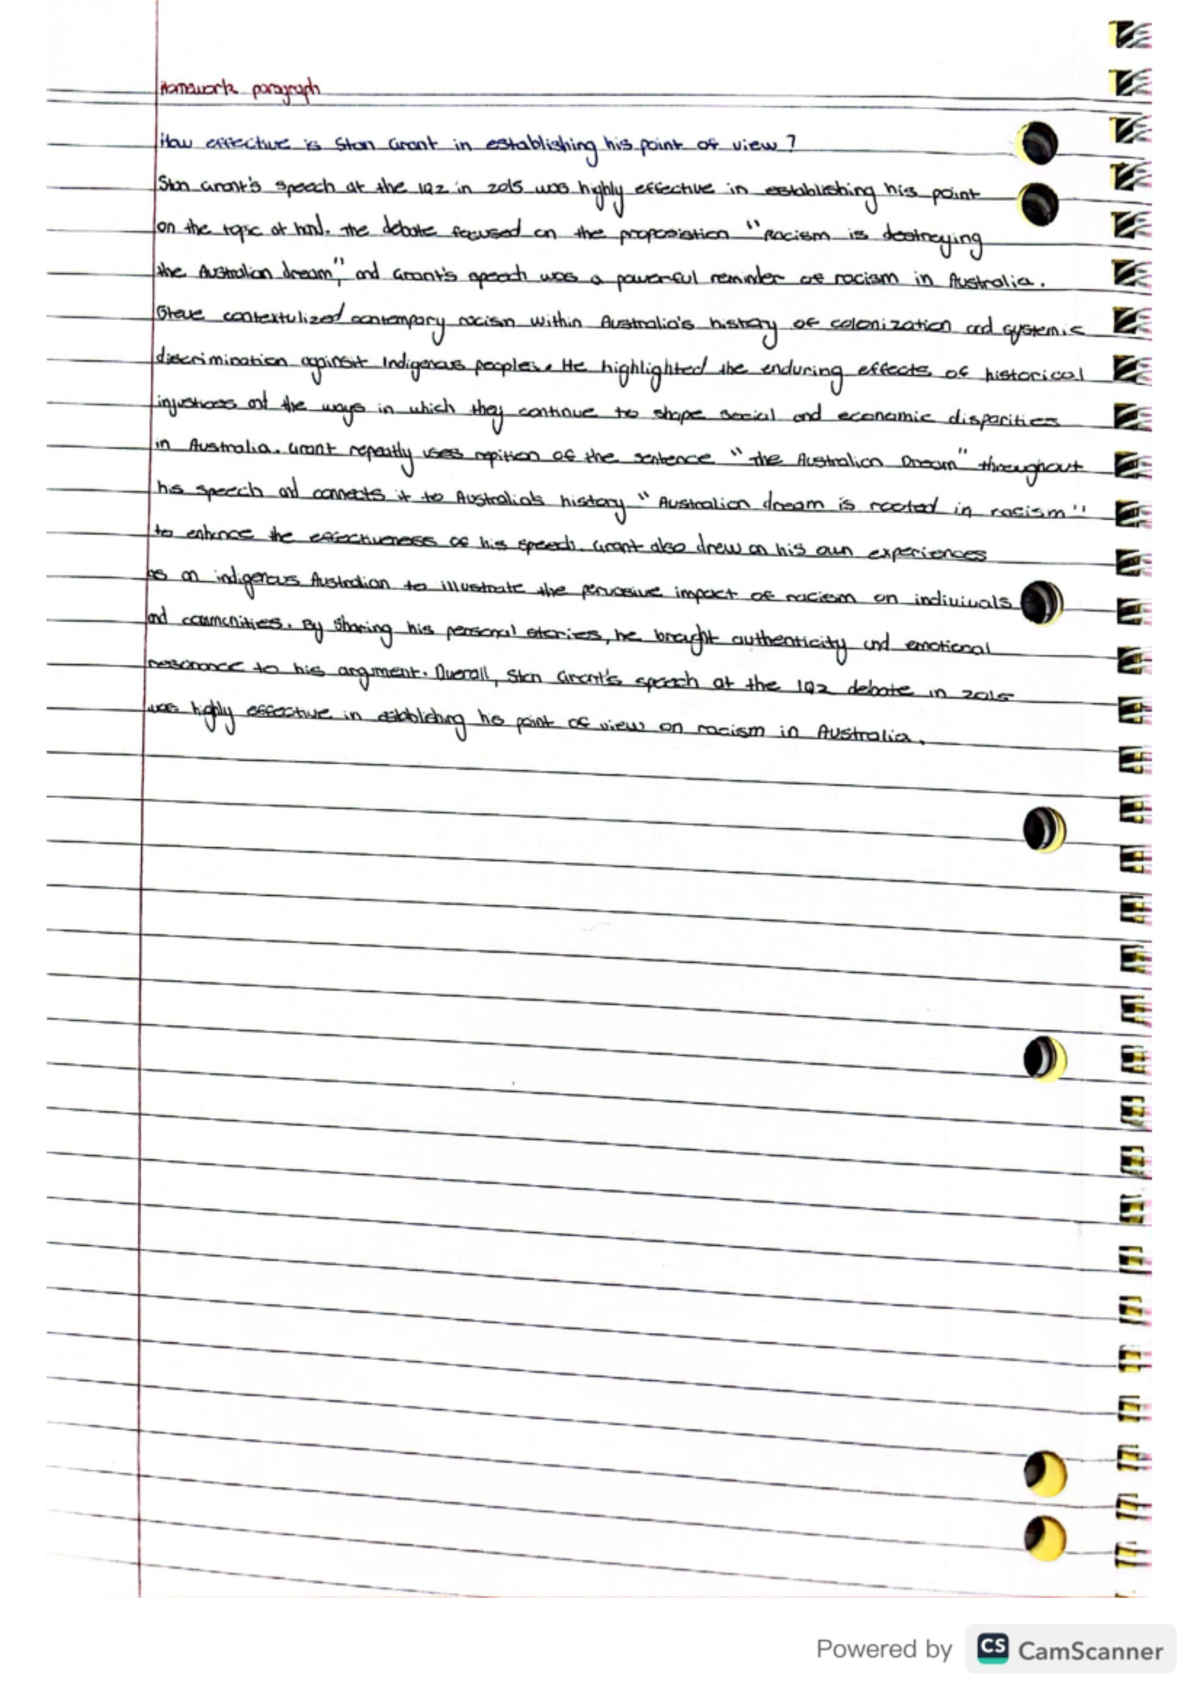 Homework paragraph
How effective is Stan Grant in establishing his point of view?
Stan Grant's speech at the IQ2 in 2015 was highly effective in establishing his point
on the topic at hand. The debate focused on the proposistion "Racism is destroying
the Australian dream", and Grant's speech was a powerful reminder of racism in Australia.
Steve contextulized contempory racism within Australia's history of colonization and systemic
discrimination against Indigenous peoples. He highlighted the enduring effects of historical
injustices and the ways in which they continue to shape social and economic disparities
in Australia. Grant repeatly uses repition of the sentence "The Australian Dream" throughout
his speech and connects it to Australia's history "Australian dream is rooted in racism"
to enhance the effectiveness of his speech. Grant also drew on his own experiences
as an indigenous Australian to illustrate the pervasive impact of racism on indiviuals
and communities. By sharing his personal stories, he brought authenticity and emotional
resonance to his argument. Overall, Stan Grant's speech at the IQ2 debate in 2015
was highly effective in establishing his point of view on racism in Australia.
Powered by CS CamScanner